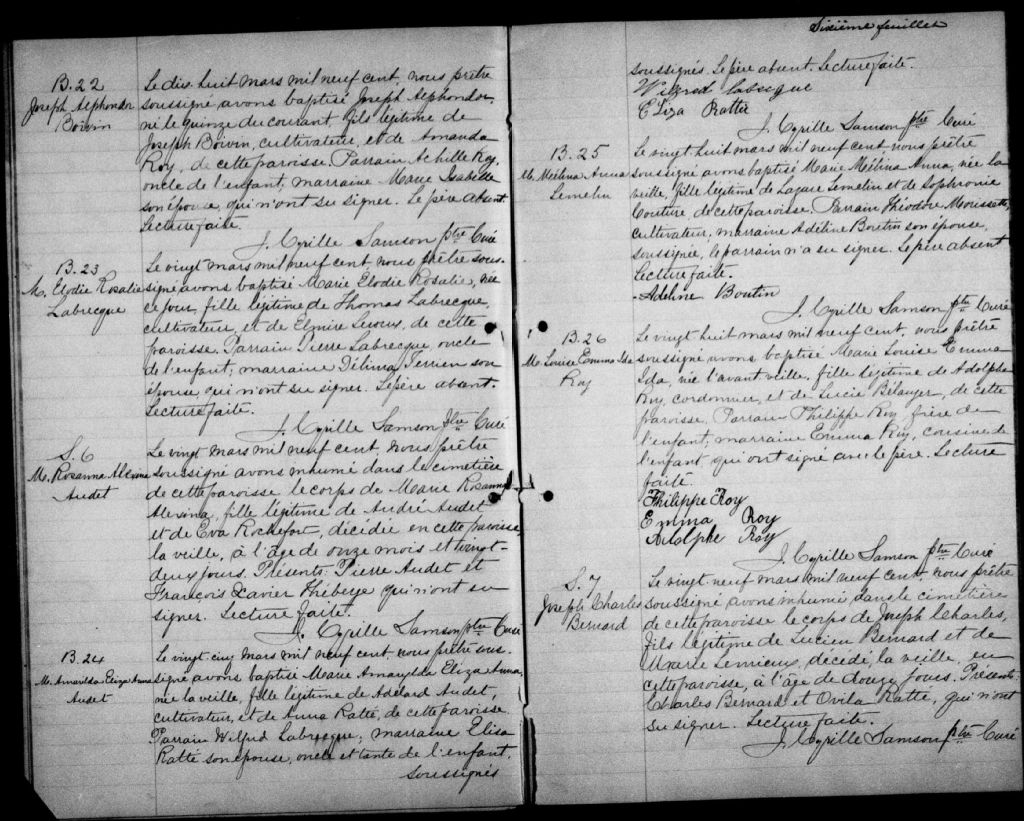 B. 22
Joseph Alphondor
Boivin
Le dix huit mars mil neuf cent, nous prêtre
soussigné avons baptisé Joseph Alphondor,
né le quinze du courant, fils légitime de
Joseph Boivin, cultivateur, et de Amanda
Roy, de cette paroisse. Parrain Achille Roy,
oncle de l'enfant, marraine Marie Isabelle
son épouse, qui n'ont su signer. Le père absent.
Lecture faite.
J. Cyrille Samson ptre Curé
B. 23
M. Elodie Rosalie
Labrecque
Le vingt mars mil neuf cent, nous prêtre sous-
signé avons baptisé Marie Elodie Rosalie, née
ce jour, fille légitime de Thomas Labrecque,
cultivateur, et de Elmire Leroux, de cette
paroisse. Parrain Pierre Labrecque oncle
de l'enfant; marraine Délima Terrien son
épouse, qui n'ont su signer. Le père absent.
Lecture faite.
J. Cyrille Samson Ptre Curé
S. 6
M. Rosanna Alexina
Audet
Le vingt mars mil neuf cent, nous prêtre
soussigné avons inhumé dans le cimetière
de cette paroisse le corps de Marie Rosanna
Alexina, fille légitime de André Audet
et de Eva Rochefort, décédée en cette paroisse,
la veille, à l'âge de onze mois et vingt-
deux jours. Présents: Pierre Audet et
François Xavier Théberge qui n'ont su
signer. Lecture faite.
J. Cyrille Samson ptre Curé
B. 24
M. Amarylda Eliza Anna
Audet
Le vingt cinq mars mil neuf cent, nous prêtre sous-
signé avons baptisé Marie Amarylda Eliza Anna,
née la veille, fille légitime de Adélard Audet,
cultivateur, et de Anna Ratté, de cette paroisse.
Parrain Wilfrid Labrecque; marraine Elisa
Ratté son épouse, oncle et tante de l'enfant,
soussignés
Sixième feuillet
soussignés. Le père absent. Lecture faite.
Wilfred Labrecque
Eliza Ratté
J. Cyrille Samson ptre Curé
B. 25
M. Mélina Anna
Lemelin
Le vingt huit mars mil neuf cent nous prêtre
soussigné avons baptisé Marie Mélina Anna, née la
veille, fille légitime de Lazare Lemelin et de Sophronie
Couture, de cette paroisse. Parrain Théodore Morissette,
cultivateur, marraine Adéline Boutin son épouse,
soussignée, le parrain n'a su signer. Le père absent
Lecture faite.
Adéline Boutin
J. Cyrille Samson ptre Curé
B. 26
M. Louise Emma Ida
Roy
Le vingt huit mars mil neuf cent, nous prêtre
soussigné avons baptisé Marie Louise Emma
Ida, née l'avant veille, fille légitime de Adolphe
Roy, cordonnier, et de Lucie Bélanger, de cette
paroisse. Parrain Philippe Roy frère de
l'enfant; marraine Emma Roy, cousine de
l'enfant qui ont signé avec le père. Lecture
faite.
Philippe Roy
Emma Roy
Adolphe Roy
J. Cyrille Samson ptre Curé
S. 7
Joseph Charles
Bernard
Le vingt-neuf mars mil neuf cent, nous prêtre
soussigné avons inhumé dans le cimetière
de cette paroisse le corps de Joseph Charles,
fils légitime de Lucien Bernard et de
Marie Lemieux, décédé, la veille, en
cette paroisse, à l'âge de douze jours. Présents:
Charles Bernard et Ovila Ratté, qui n'ont
su signer. Lecture faite.
J. Cyrille Samson ptre Curé